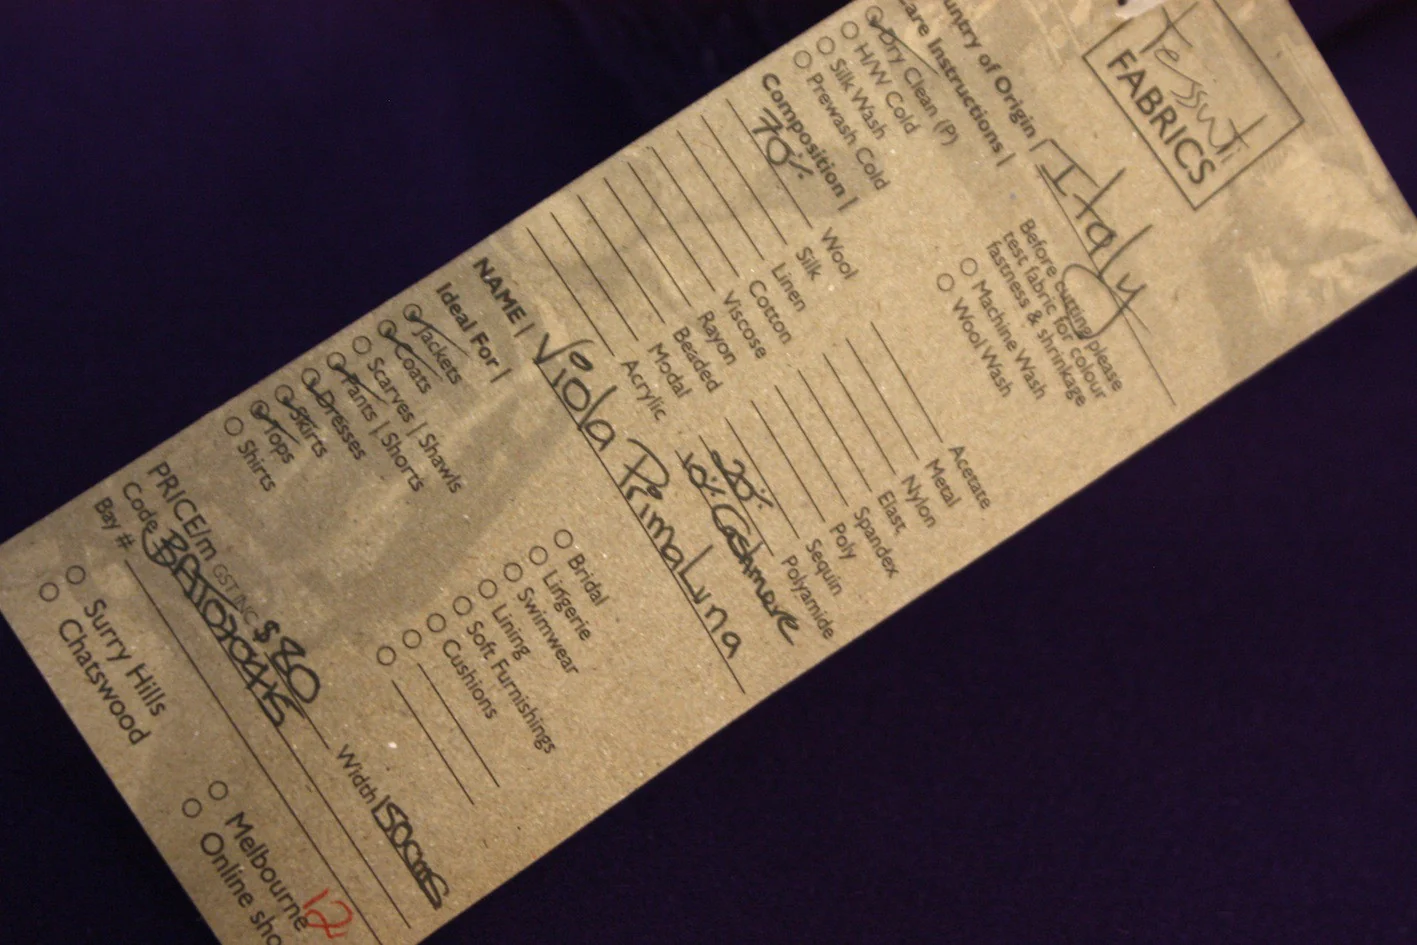 Tessuti
FABRICS
untry of Origin | Italy
are Instructions |
Dry Clean (P)
H/W Cold
Silk Wash
Prewash Cold
Before cutting please
test fabric for colour
fastness & shrinkage
Machine Wash
Wool Wash
Composition |
70% Wool
Silk
Linen
Cotton
Viscose
Rayon
Beaded
Modal
Acrylic
Acetate
Metal
Nylon
Elast
Spandex
Poly
Sequin
20% Polyamide
10% Cashmere
NAME | Viola PrimaLuna
Ideal For |
Jackets
Coats
Scarves | Shawls
Pants | Shorts
Dresses
Skirts
Tops
Shirts
Bridal
Lingerie
Swimwear
Lining
Soft Furnishings
Cushions
PRICE/m GST INC $80 Width 150cms
Code
Bay #
Surry Hills
Chatswood
Melbourne
Online sho
12